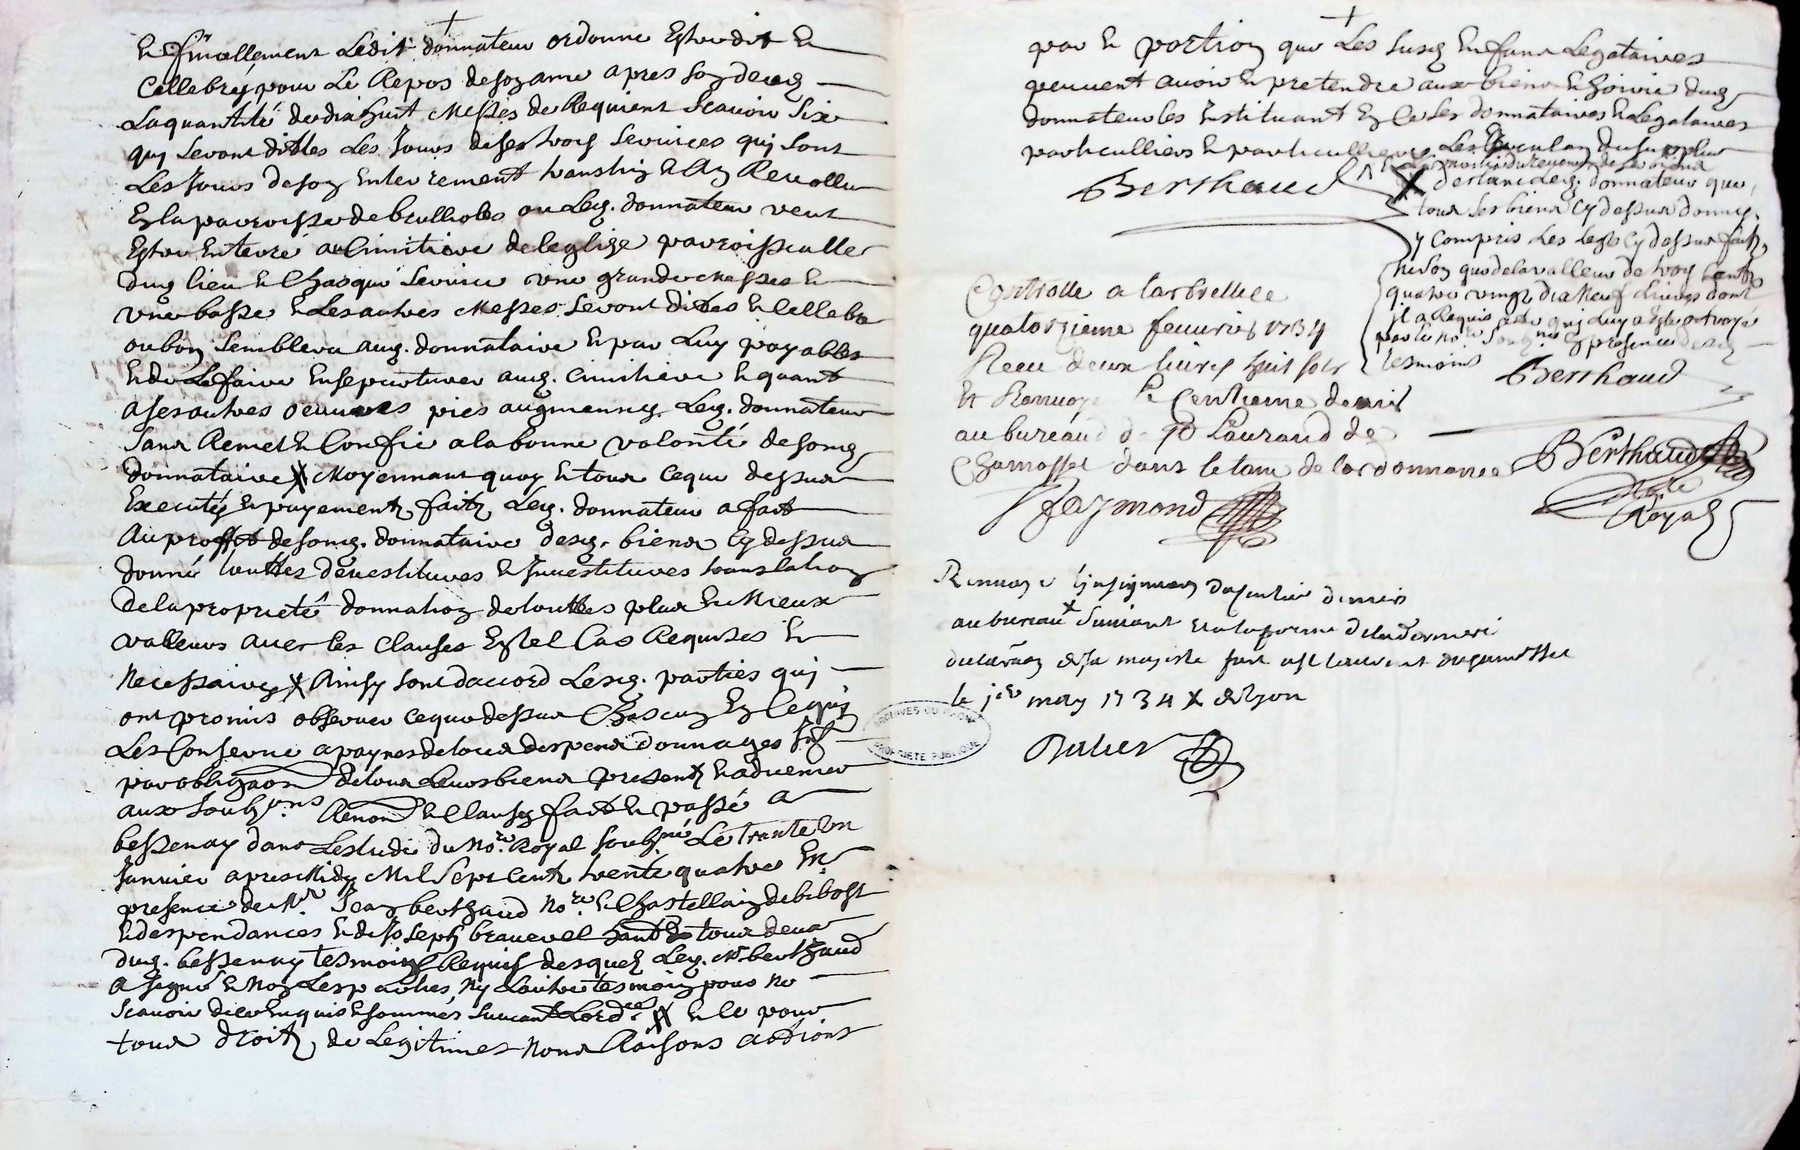 Et finallement ledit donnateur ordonne Estre dit Et
Cellebré pour Le Repos de son ame apres son deceds
La quantité de dixhuit Messes de Requiem Scavoir Six
quy Seront dittes Les Jours de ses trois Services quy sont
Les Jours de son Enterrement trantin Et An Revollu
En la parroisse de brullioles ou Led. donnateur veut
Estre Enterré au Cimitiere de leglize parroissialle
dud lieu Et Chasque Service une grande messe Et
une basse Et les autres Messes Seront dittes Et Cellebre
ou bon Semblera aud. donnataire Et par Luy payables
Et de Le faire Ensepulturer aud. Cimitiere Et quant
a ses autres oeuvres pies augmenne Led. donnateur
Sans Remet Et Confie a la bonne volonté de son
donnataire X Moyennant quoy Et tout ce que dessus
Executé Et payement faits Led. donnateur a fait
Au proffit de son d. donnataire desd. biens Cy dessus
donné touttes devestitures Et Investitures translation
de la proprieté donnation de touttes plus Et Mieux
valleurs avec les clauses En tel Cas Requises Et
Necessaires X Ainsy sont daccord Lesd. parties quy
ont promis observer ce que dessus Chascun En
Les Conserne a paynes de tous despens dommages
par obligaon de tous Leurs biens presents Et advenir
aux Soubmons Renon Et Clauses fait Et passé a
bessenay dans Lestude du Nore. Royal soubné Le trante Un
Janvier apres Midy Mil Sept Cents trente quatre En
presence de Mr. Jean berthaud Nore. Et Chastellain de bibost
Et despendances Et de Joseph braverel habt de tous deux
dud. bessenay tesmoins Requis desquels Led. Mr berthaud
a signé Et Non Les parties Ny Lautre tesmoin pour Ne
Scavoir de ce Enquis Et sommés Suivant Lordce. X Et Ce pour
tous droits de Legitimes Noms Raisons actions
par Et portion que Les Susd Enfans Legataires
peuvent avoir Et pretendre aux biens Et hoirie dud
donnateur les Instituant En Ce Ses donnataires Et Legataires
particulliers Et particulliere
Berthaud
X declare Led. donnateur que
tous Ses biens Cy dessus donnés
y Compris Les legs Cy dessus faits
ne Son que de la valleur de trois Cents
quatre vingt dix Neuf Livres dont
il a Requis acte quy Luy a Esté octroyé
par le Nore. Soubné En presence desd
tesmoins
Berthaud
Controlle a larbrelle ce
quatorzieme fevrier 1734
Receu deux livres huit sols
Et Renvoyé le Centieme denier
au bureau de Laurand de
Chamosset dans le tems de lordonnance
Raymond
Berthaud
Nore
Royal
Renvoyé L'insinuaon du Centieme denier
au bureau X Suivant Et a la forme de la derniere
declaraon de sa majesté fait
le 1er may 1734 X de lyon
ARCHIVES DU RHONE
PROPRIETE PUBLIQUE